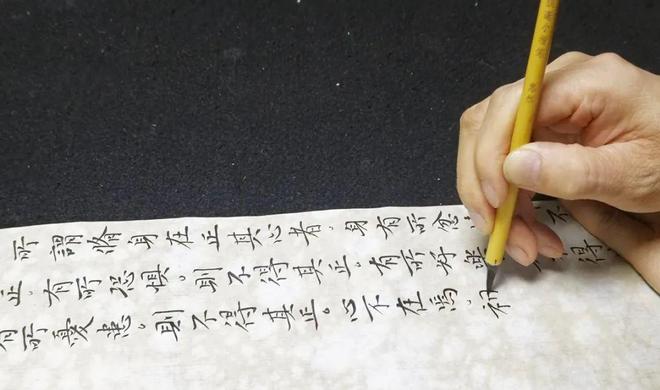 所謂脩身在正其心者。身有所忿 不
正。有所恐懼。則不得其正。有所好樂 得
有所憂患。則不得其正。心不在焉。